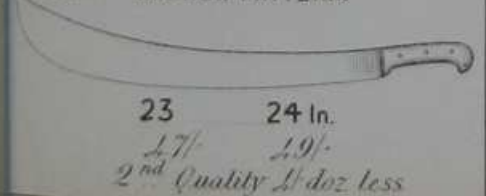 23 24 In.
47/- 49/-
2nd Quality doz less